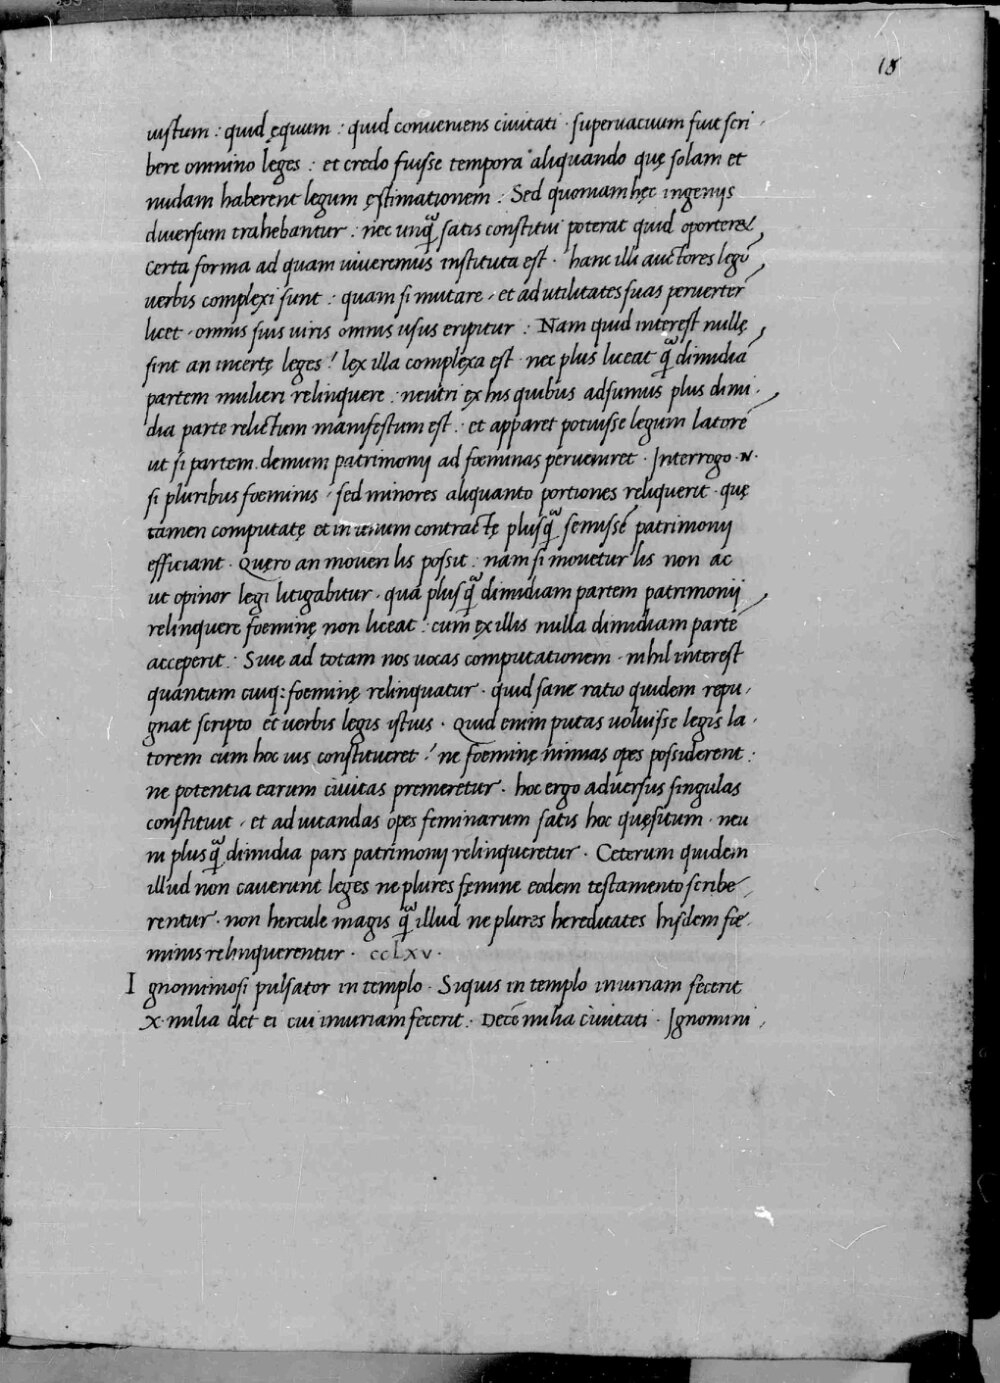 18
iustum : quid ęquum : quid conueniens ciuitati · superuacuum fuit scri
bere omnino leges : et credo fuisse tempora aliquando quę solam et
nudam haberent legum ęstimationem : Sed quoniam hęc ingeniis
diuersum trahebantur : nec unq̃ satis constitui poterat quid oporteret
certa forma ad quam uiueremus instituta est · hanc illi auctores legũ
uerbis complexi sunt : quam si mutare · et ad utilitates suas peruerter̃
licet · omnis suis uiris omnis usus eripitur : Nam quid interest nullę
sint an incertę leges ! lex illa complexa est · nec plus liceat q̃ dimidiã
partem mulieri relinquere : neutri ex his quibus adsumus plus dimi
dia parte relictum manifestum est : et apparet potuisse legum latorẽ
ut si partem demum patrimonij ad foeminas perueniret · Interrogo · N ·
si pluribus foeminis · sed minores aliquanto portiones reliquerit · quę
tamen computatę et in unum contractę plusq̃ semissẽ patrimonij
efficiant · Quero an moueri lis possit : nam si mouetur lis non ac
ut opinor legi litigabitur · qua plusq̃ dimidiam partem patrimonij
relinquere foeminę non liceat : cum ex illis nulla dimidiam partẽ
acceperit : Siue ad totam nos uocas computationem · nihil interest
quantum cuiq: foeminę relinquatur · quid sane ratio quidem repu
gnat scripto et uerbis legis istius · Quid enim putas uoluisse legis la
torem cum hoc ius constitueret ! ne foeminę nimias opes possiderent :
ne potentia earum ciuitas premeretur · hoc ergo aduersus singulas
constituit · et ad uitandas opes feminarum satis hoc quęsitum · neu
ni plusq̃ dimidia pars patrimonij relinqueretur · Ceterum quidem
illud non cauerunt leges ne plures femine eodem testamento scribe
rentur · non hercule magis q̃ illud ne plures hereditates hisdem foe
minis relinquerentur · CCLXV ·
Ignominiosi pulsator in templo · Siquis in templo iniuriam fecerit
X · milia det ei cui iniuriam fecerit · Decẽ milia ciuitati · Ignomini